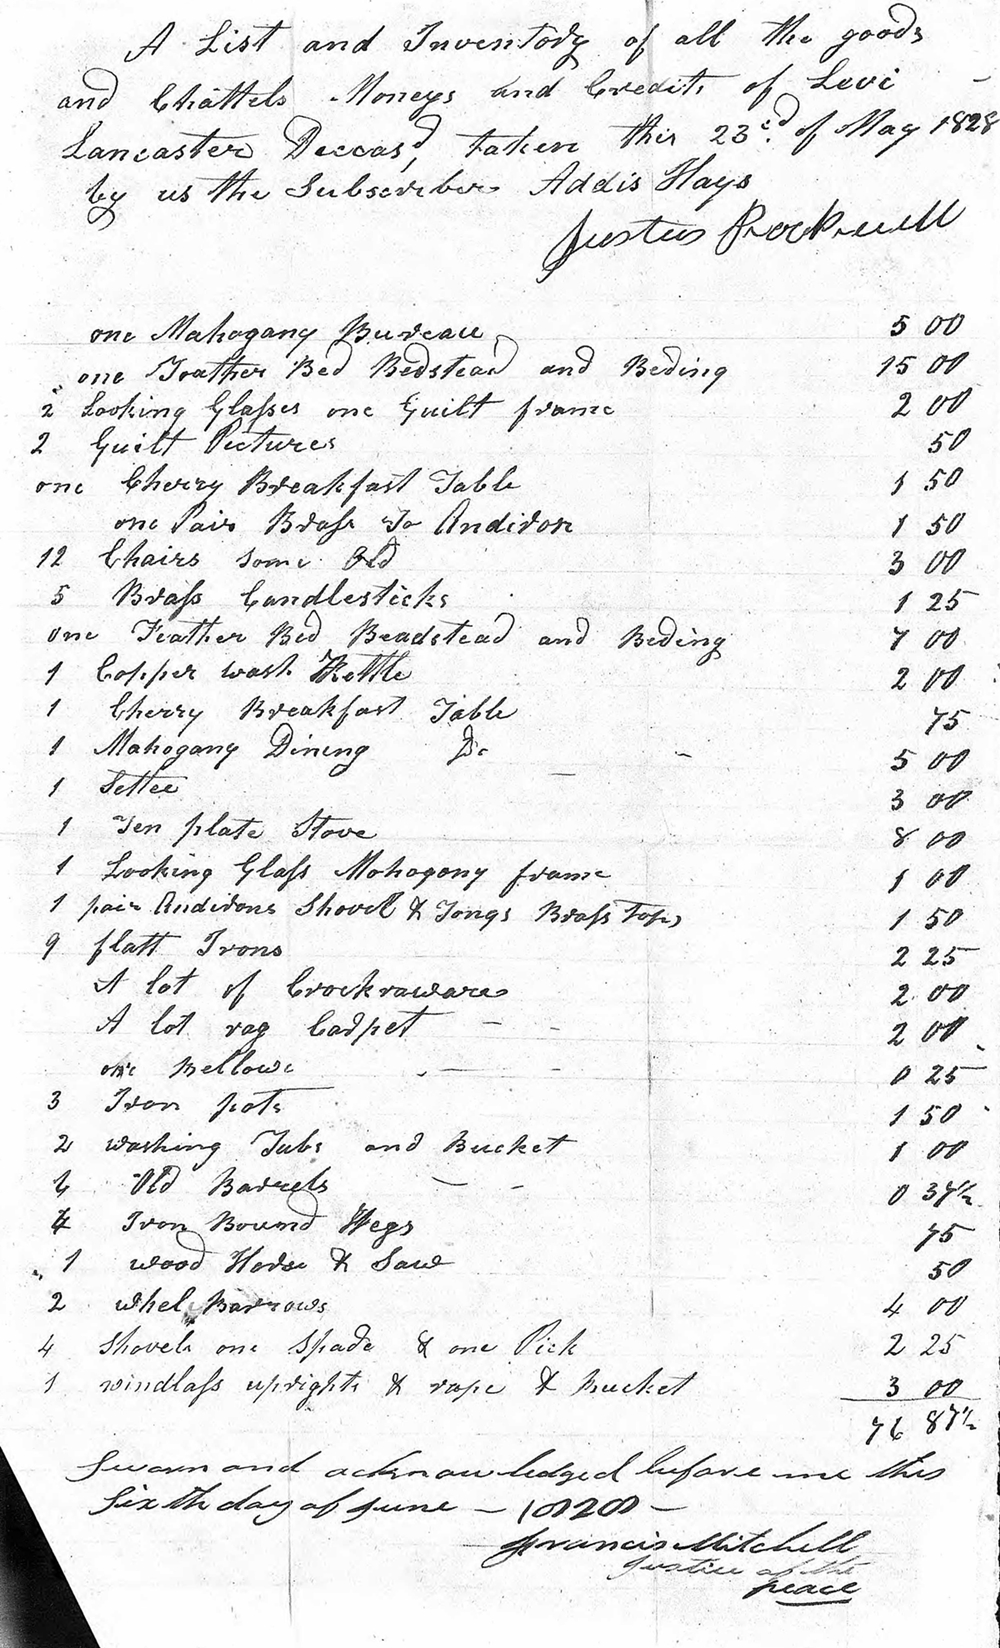 A List and Inventory of all the goods
and Chattels Moneys and Credits of Levi
Lancaster Deceasd, taken this 23ed of May 1828
by us the Subscribers Addis Hays
Justus Rockwell
one Mahogany Bureau 5 00
one Feather Bed Bedstead and Beding 15 00
2 Looking Glasses one Guilt frame 2 00
2 Guilt Pictures 50
one Cherry Breakfast Table 1 50
one Pair Brass To Andiron 1 50
12 Chairs some Old 3 00
5 Brass Candlesticks 1 25
one Feather Bed Beadstead and Beding 7 00
1 Copper wash Kettle 2 00
1 Cherry Breakfast Table 75
1 Mahogany Dining Do - 5 00
1 Settee 3 00
1 Ten plate Stove 8 00
1 Looking Glass Mohogony frame 1 00
1 pair Andirons Shovel & Tongs Brass tops 1 50
9 flatt Irons 2 25
A lot of Crockraware 2 00
A lot rag Carpet - - 2 00
one Bellows - - 0 25
3 Iron pots 1 50
2 washing Tubs and Bucket 1 00
Old Barrels - - 0 37½
4 Iron Bound Kegs 75
1 wood Horse & Saw 50
2 whel Barrows 4 00
4 Shovels one Spade & one Pick 2 25
1 windlass uprights & rope & Bucket 3 00
76 87½
Sworn and acknowledged before me this
Sixth day of June - 1828 -
Francis Mitchell
Justice of the
peace